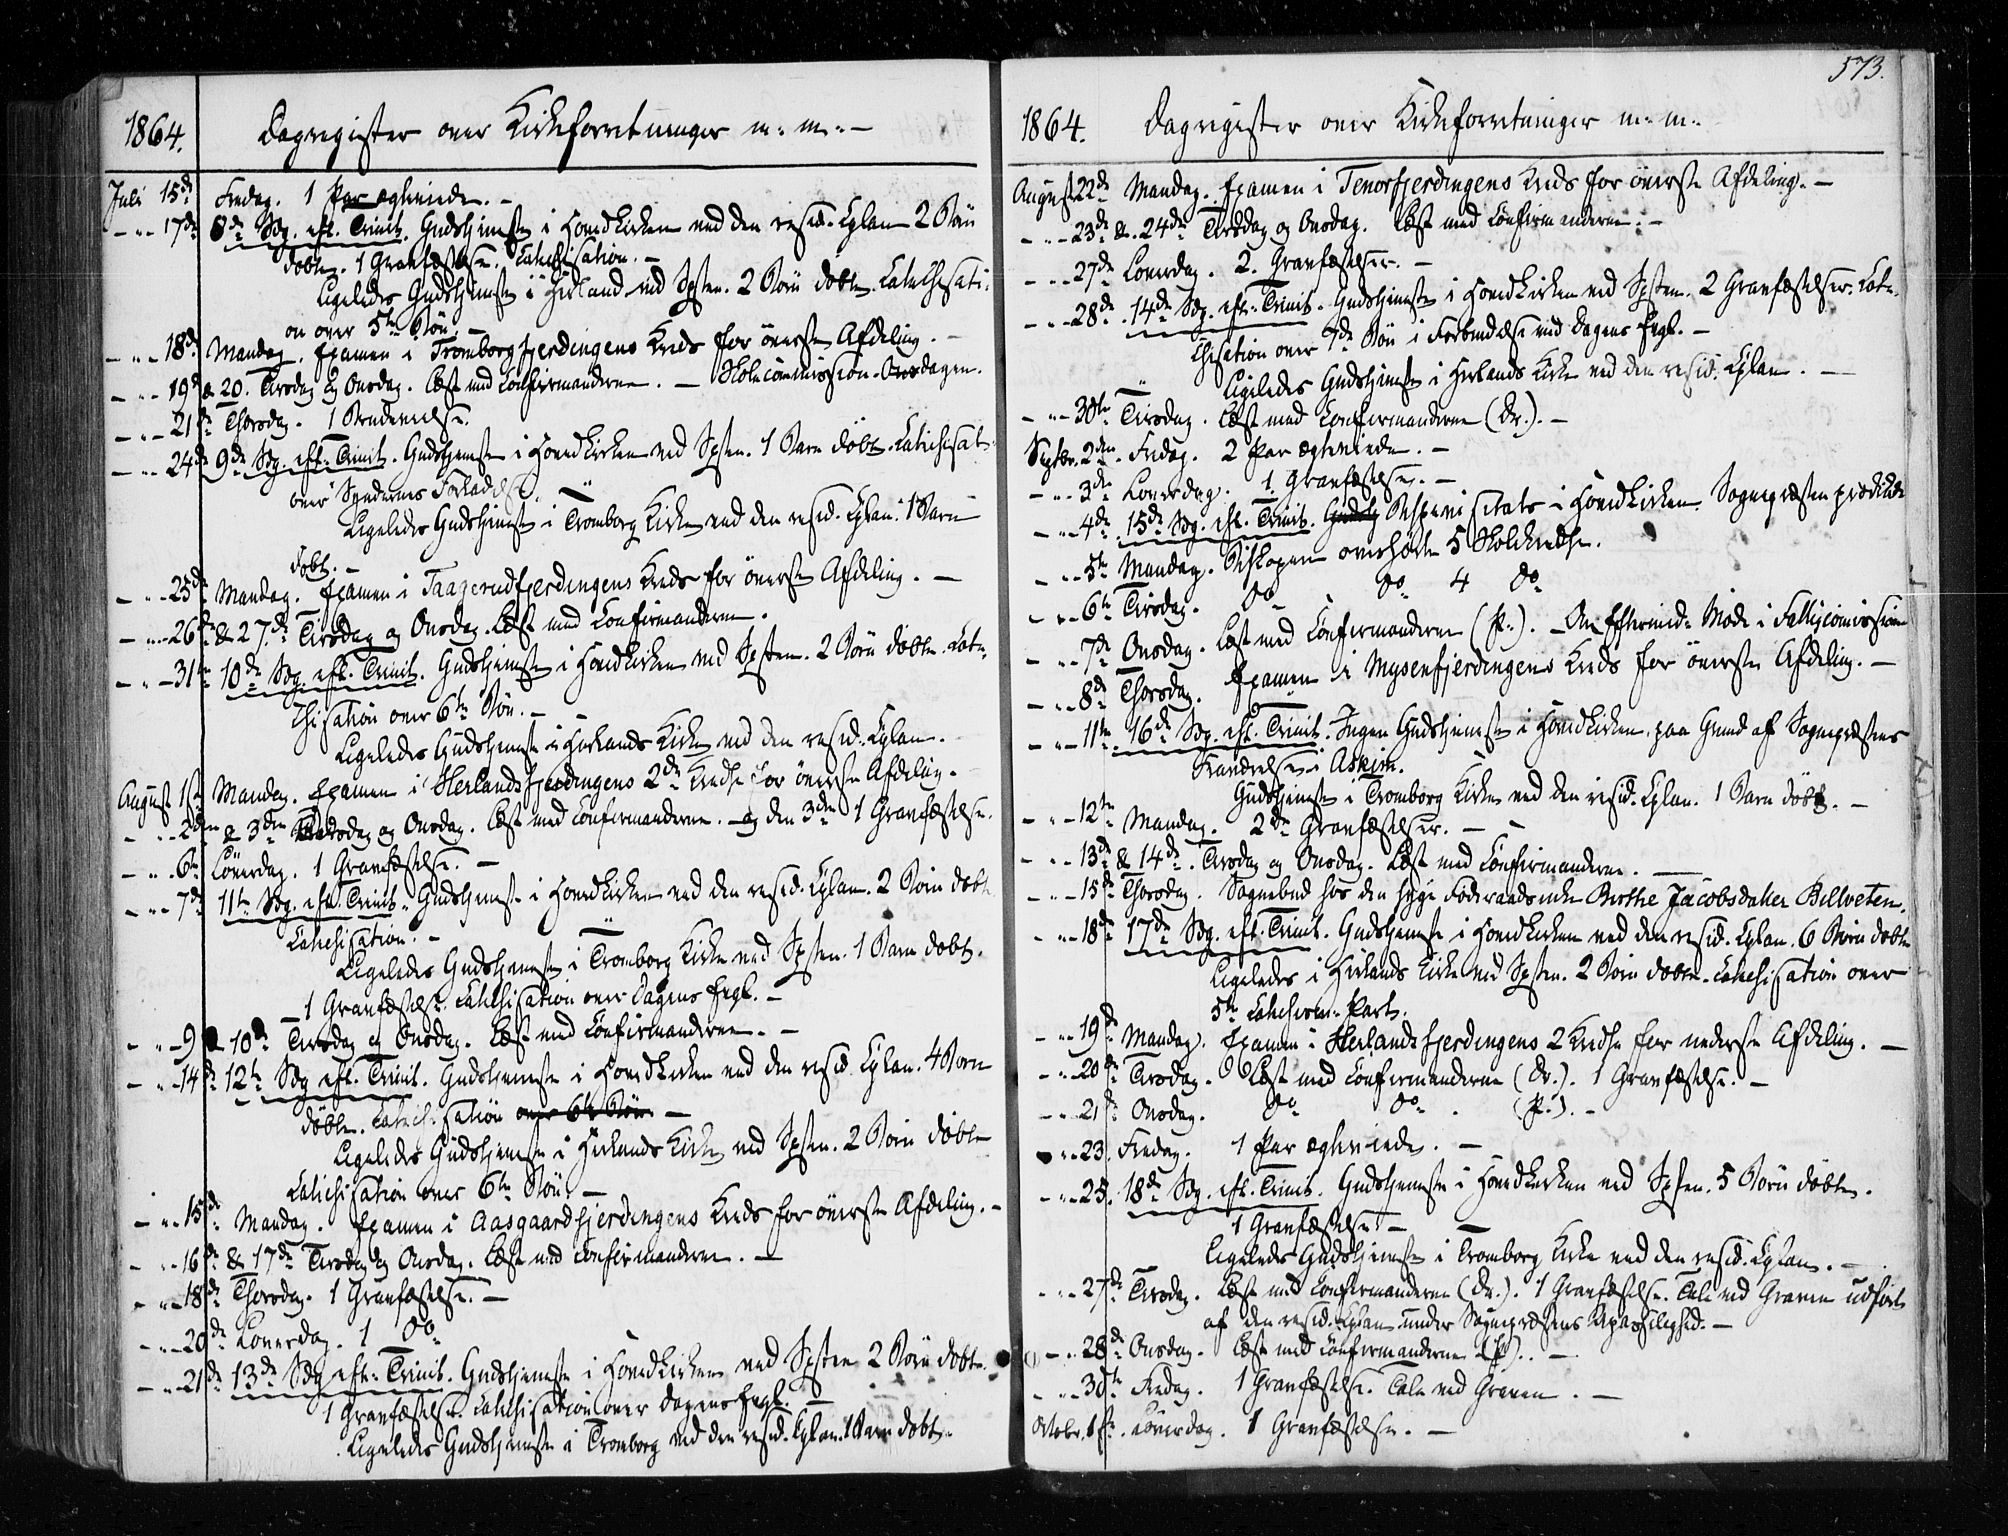 1864.
Dagregister over Kirkeforretninger m. m. –
Juli 15de Fredag. 1 Par ægteviede. –
– " – 17de 8de Sdg. eft. Trinit. Gudstjeneste i Hovedkirken ved den resid. Cplan 2 Børn
døbte. 1 Gravfæstelse. Catechisation. –
Ligeledes Gudstjeneste i Herland ved Spsten. 2 Børn døbte. Catechisati-
on over 5te Bøn. –
– " – 18de Mandag. Examen i Tromborgfjerdingens Kreds for øverste Afdeling. –
– " – 19de & 20. Tirsdag og Onsdag. Læst med Confirmanderne. – Skolecommission Onsdagen.
– " – 21de Thorsdag. 1 Brudevielse.
– " – 24de 9de Sdg. eft. Trinit. Gudstjeneste i Hovedkirken ved Spsten. 1 Barn døbt. Catechisat.
over Syndernes Forladelse.
Ligeledes Gudstjeneste i Tromborg Kirke ved den resid. Cplan. 1 Barn
døbt. –
– " – 25de Mandag. Examen i Taagerudfjerdingens Kreds for øverste Afdeling. –
– " – 26de & 27de Tirsdag og Onsdag. Læst med Confirmanderne.
– " – 31te 10de Sdg. eft. Trinit. Gudstjeneste i Hovedkirken ved Spsten. 2 Børn døbte. Cate-
chisation over 6te Bøn. –
Ligeledes Gudstjeneste i Herlands Kirke ved den resid. Cplan.
August 1ste Mandag. Examen i Herlandsfjerdingens 2de Kredse for øverste Afdeling. –
– " – 2den & 3die Tirsdag og Onsdag. Læst med Confirmanderne. – og den 3die 1 Gravfæstelse.
– " – 6te Løverdag. 1 Gravfæstelse. –
– " – 7de 11te Sdg. eft. Trinit. Gudstjeneste i Hovedkirken ved den resid. Cplan. 2 Børn døbte
Catechisation. –
Ligeledes Gudstjeneste i Tromborg Kirke ved Spsten. 1 Barn døbt.
– 1 Gravfæstelse. Catechisation over Dagens Evgl. –
– " – 9 & 10de Tirsdag og Onsdag. Læst med Confirmanderne. –
– " – 14de 12te Sdg eft. Trinit. Gudstjeneste i Hovedkirken ved den resid. Cplan. 4 Børn
døbte. Catechisation over 6te Bøn. –
Ligeledes Gudstjeneste i Herlands Kirke ved Spsten. 2 Børn døbte
Catechisation over 6te Bøn. –
– " – 15de Mandag. Examen i Aasgaardfjerdingens Kreds for øverste Afdeling. –
– " – 16de & 17de Tirsdag og Onsdag. Læst med Confirmanderne. –
– " – 18de Thorsdag. 1 Gravfæstelse. –
– " – 20de Løverdag. 1 Do
– " – 21de 13de Sdg eft. Trinit. Gudstjeneste i Hovedkirken ved Spsten 2 Børn døbte.
1 Gravfæstelse. Catechisation over dagens Evgl. –
Ligeledes Gudstjeneste i Tromborg ved den resid. Cplan. 1 Barn døbt.
573.
1864.
Dagregister over Kirkeforretninger m. m.
August 22de Mandag. Examen i Tenorfjerdingens Kreds for øverste Afdeling. –
– " – 23de & 24de Tirsdag og Onsdag. Læst med Confirmanderne. –
– " – 27de Løverdag. 2. Gravfæstelser. –
– " – 28de 14de Sdg. eft. Trinit. Gudstjeneste i Hovedkirken ved Spsten. 2 Gravfæstelser. Cate-
chisation over 7de Bøn i Forbindelse med Dagens Evgl. –
Ligeledes Gudstjeneste i Herlands Kirke ved den resid. Cplan. –
– " – 30te Tirsdag. Læst med Confirmanderne (Dr.). –
Septbr. 2den Fredag. 2 Par ægteviede. –
– " – 3die Løverdag. 1 Gravfæstelse. –
– " – 4de 15de Sdg. eft. Trinit. Gudstj Bispevisitats i Hovedkirken. Sognepræsten prædikede
– " – 5te Mandag. Biskopen overhørte 5 Skolekredse.
– " – 6te Tirsdag. Do Do 4 Do
– " – 7de Onsdag. Læst med Confirmanderne (P.). – Om Eftermid. Møde i Fattigcomissionen
– " – 8de Thorsdag. Examen i Mysenfjerdingens Kreds for øverste Afdeling. –
– " – 11te 16de Sdg. eft. Trinit. Ingen Gudstjeneste i Hovedkirken, paa Grund af Sognepræstens
Fraværelse i Askim.
Gudstjeneste i Tromborg Kirke ved den resid. Cplan. 1 Barn døbt. –
– " – 12te Mandag. 2de Gravfæstelser. –
– " – 13de & 14de Tirsdag og Onsdag. Læst med Confirmanderne. –
– " – 15de Thorsdag. Sognebud hos den syge Føderaadsenke Berthe Jacobsdatter Billveten.
– " – 18de 17de Sdg. eft. Trinit. Gudstjeneste i Hovedkirken ved den resid. Cplan. 6 Børn døbte
Ligeledes i Herlands Kirke ved Spsten. 2 Børn døbte. Catechisation over
5te Catechism. Part.
– " – 19de Mandag. Examen i Herlandsfjerdingens 2 Kredse for nederste Afdeling. –
– " – 20de Tirsdag. Læst med Confirmanderne (Dr.). 1 Gravfæstelse. –
– " – 21de Onsdag. Do Do (P.). –
– " – 23. Fredag. 1 Par ægteviede. –
– " – 25. 18de Sdg. eft. Trinit. Gudstjeneste i Hovedkirken ved Spsten. 5 Børn døbte.
1 Gravfæstelse –
Ligeledes Gudstjeneste i Tromborg Kirke ved den resid. Cplan. –
– " – 27de Tirsdag. Læst med Confirmanderne (Dr.). 1 Gravfæstelse. Tale ved Graven udført
af den resid. Cplan under Sognepræstens Upasselighed. –
– " – 28de Onsdag. Læst med Confirmanderne (P). –
– " – 30te Fredag. 1 Gravfæstelse. Tale ved Graven. –
Octobr. 1ste Løverdag. 1 Gravfæstelse. –